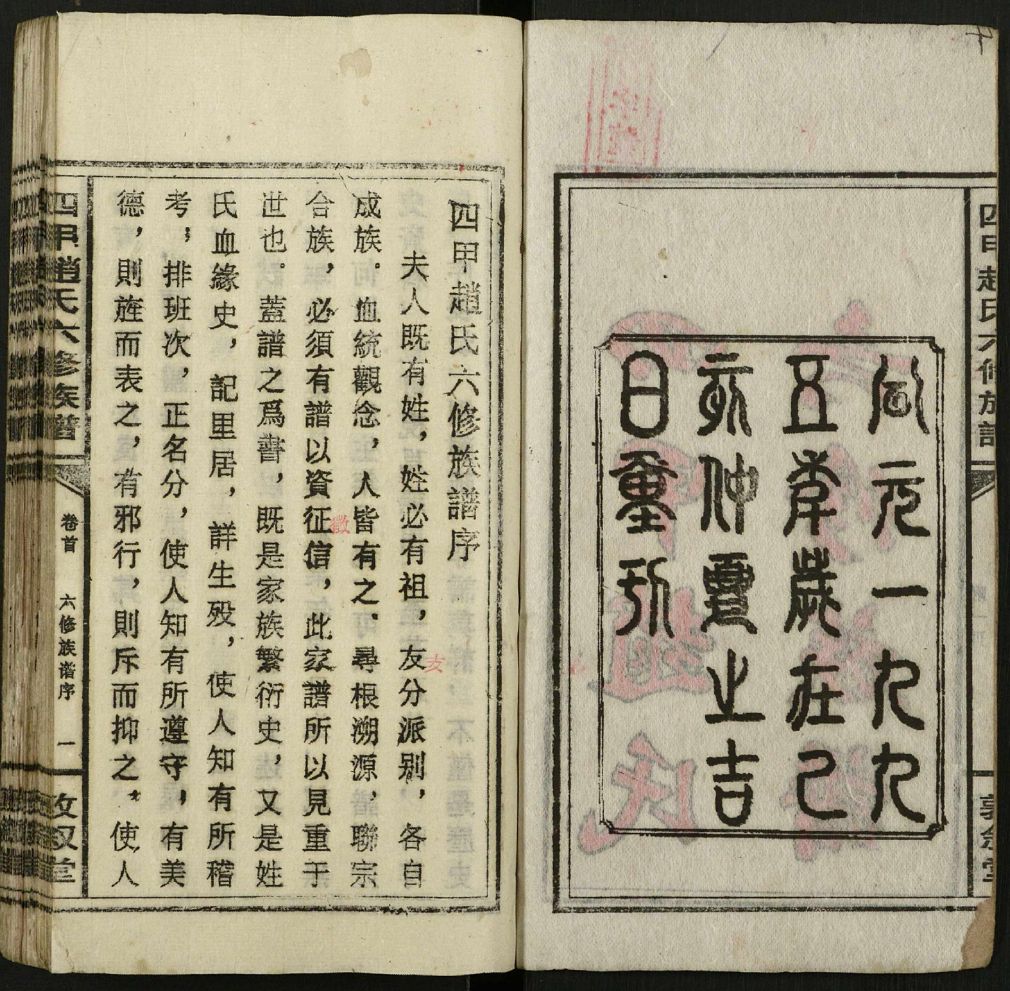 四甲趙氏六修族譜
敦叙堂
公元一九九
五年歲在乙
亥仲夏之吉
日重刊
四甲趙氏六修族譜序
夫人既有姓，姓必有祖，友分派别，各自
支
成族。血統觀念，人皆有之。尋根溯源，聯宗
合族，必須有譜以資征信，此家譜所以見重于
徵
世也。蓋譜之爲書，既是家族繁衍史，又是姓
氏血緣史，記里居，詳生殁，使人知有所稽
考；排班次，正名分，使人知有所遵守，有美
德，則旌而表之，有邪行，則斥而抑之。使人
四甲趙氏六修族譜
卷首
六修族譜序
一
敦叙堂